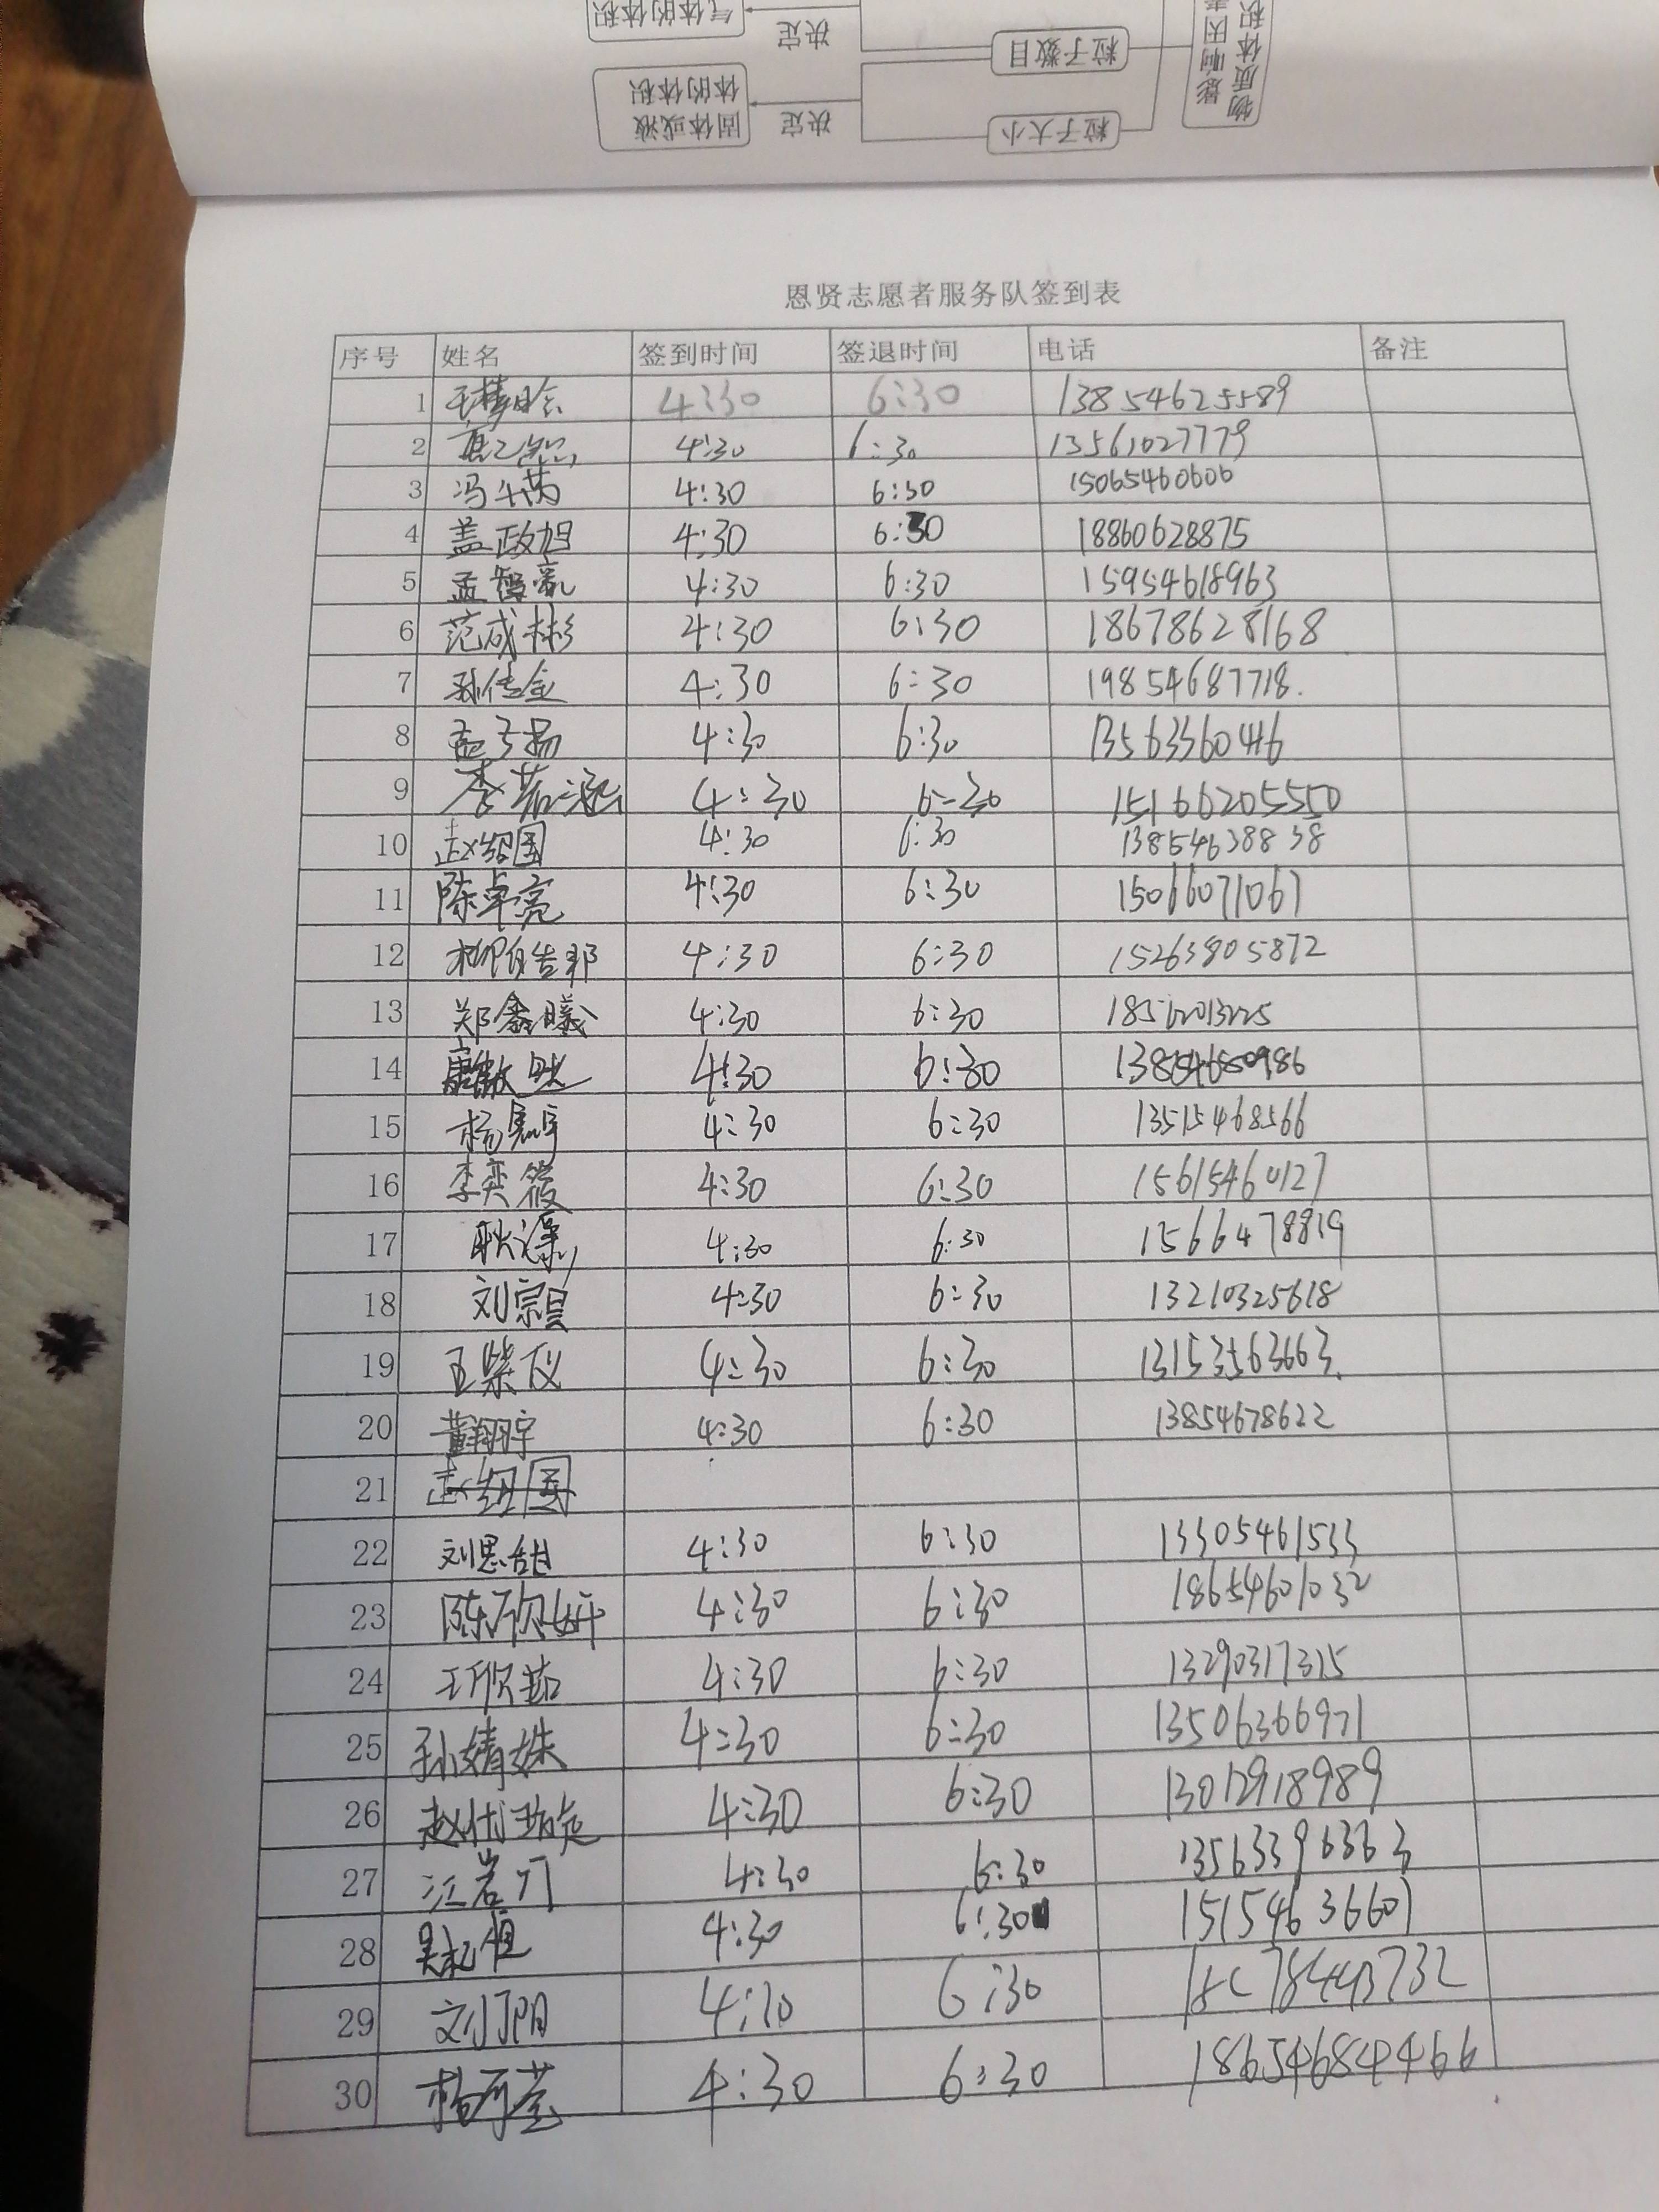 气体的体积
决定
粒子数目
固体或液
体的体积
决定
粒子大小
影响因素
物质体积
恩贤志愿者服务队签到表
序号 姓名 签到时间 签退时间 电话 备注
1 4:30 6:30 13854625589
2 4:30 6:30 13561027779
3 冯千芮 4:30 6:30 15065460606
4 盖政旭 4:30 6:30 18860628875
5 孟智豪 4:30 6:30 15954618963
6 范成彬 4:30 6:30 18678628168
7 孙传金 4:30 6:30 19854687718.
8 孟子扬 4:30 6:30 13563360416
9 李若涵 4:30 6:30 15166205550
10 赵绍国 4:30 6:30 13854638838
11 陈卓亮 4:30 6:30 15066071067
12 柳皓邦 4:30 6:30 15263805872
13 郑鑫曦 4:30 6:30 18562013225
14 唐敏 4:30 6:30 13854680986
15 杨宇 4:30 6:30 13515468566
16 李奕筱 4:30 6:30 15615460127
17 耿 4:30 6:30 1566478819
18 刘宗昊 4:30 6:30 13210325618
19 王紫仪 4:30 6:30 13153563663.
20 董翔宇 4:30 6:30 13854678622
21 赵绍国
22 刘思甜 4:30 6:30 13305461533
23 陈欣妍 4:30 6:30 18654601032
24 王欣茹 4:30 6:30 13290317315
25 孙婧姝 4:30 6:30 13506366971
26 赵 4:30 6:30 13012918989
27 江岩 4:30 6:30 13563396363
28 吴 4:30 6:30 15154636601
29 刘阳 4:30 6:30
30 杨 4:30 6:30 18654684466